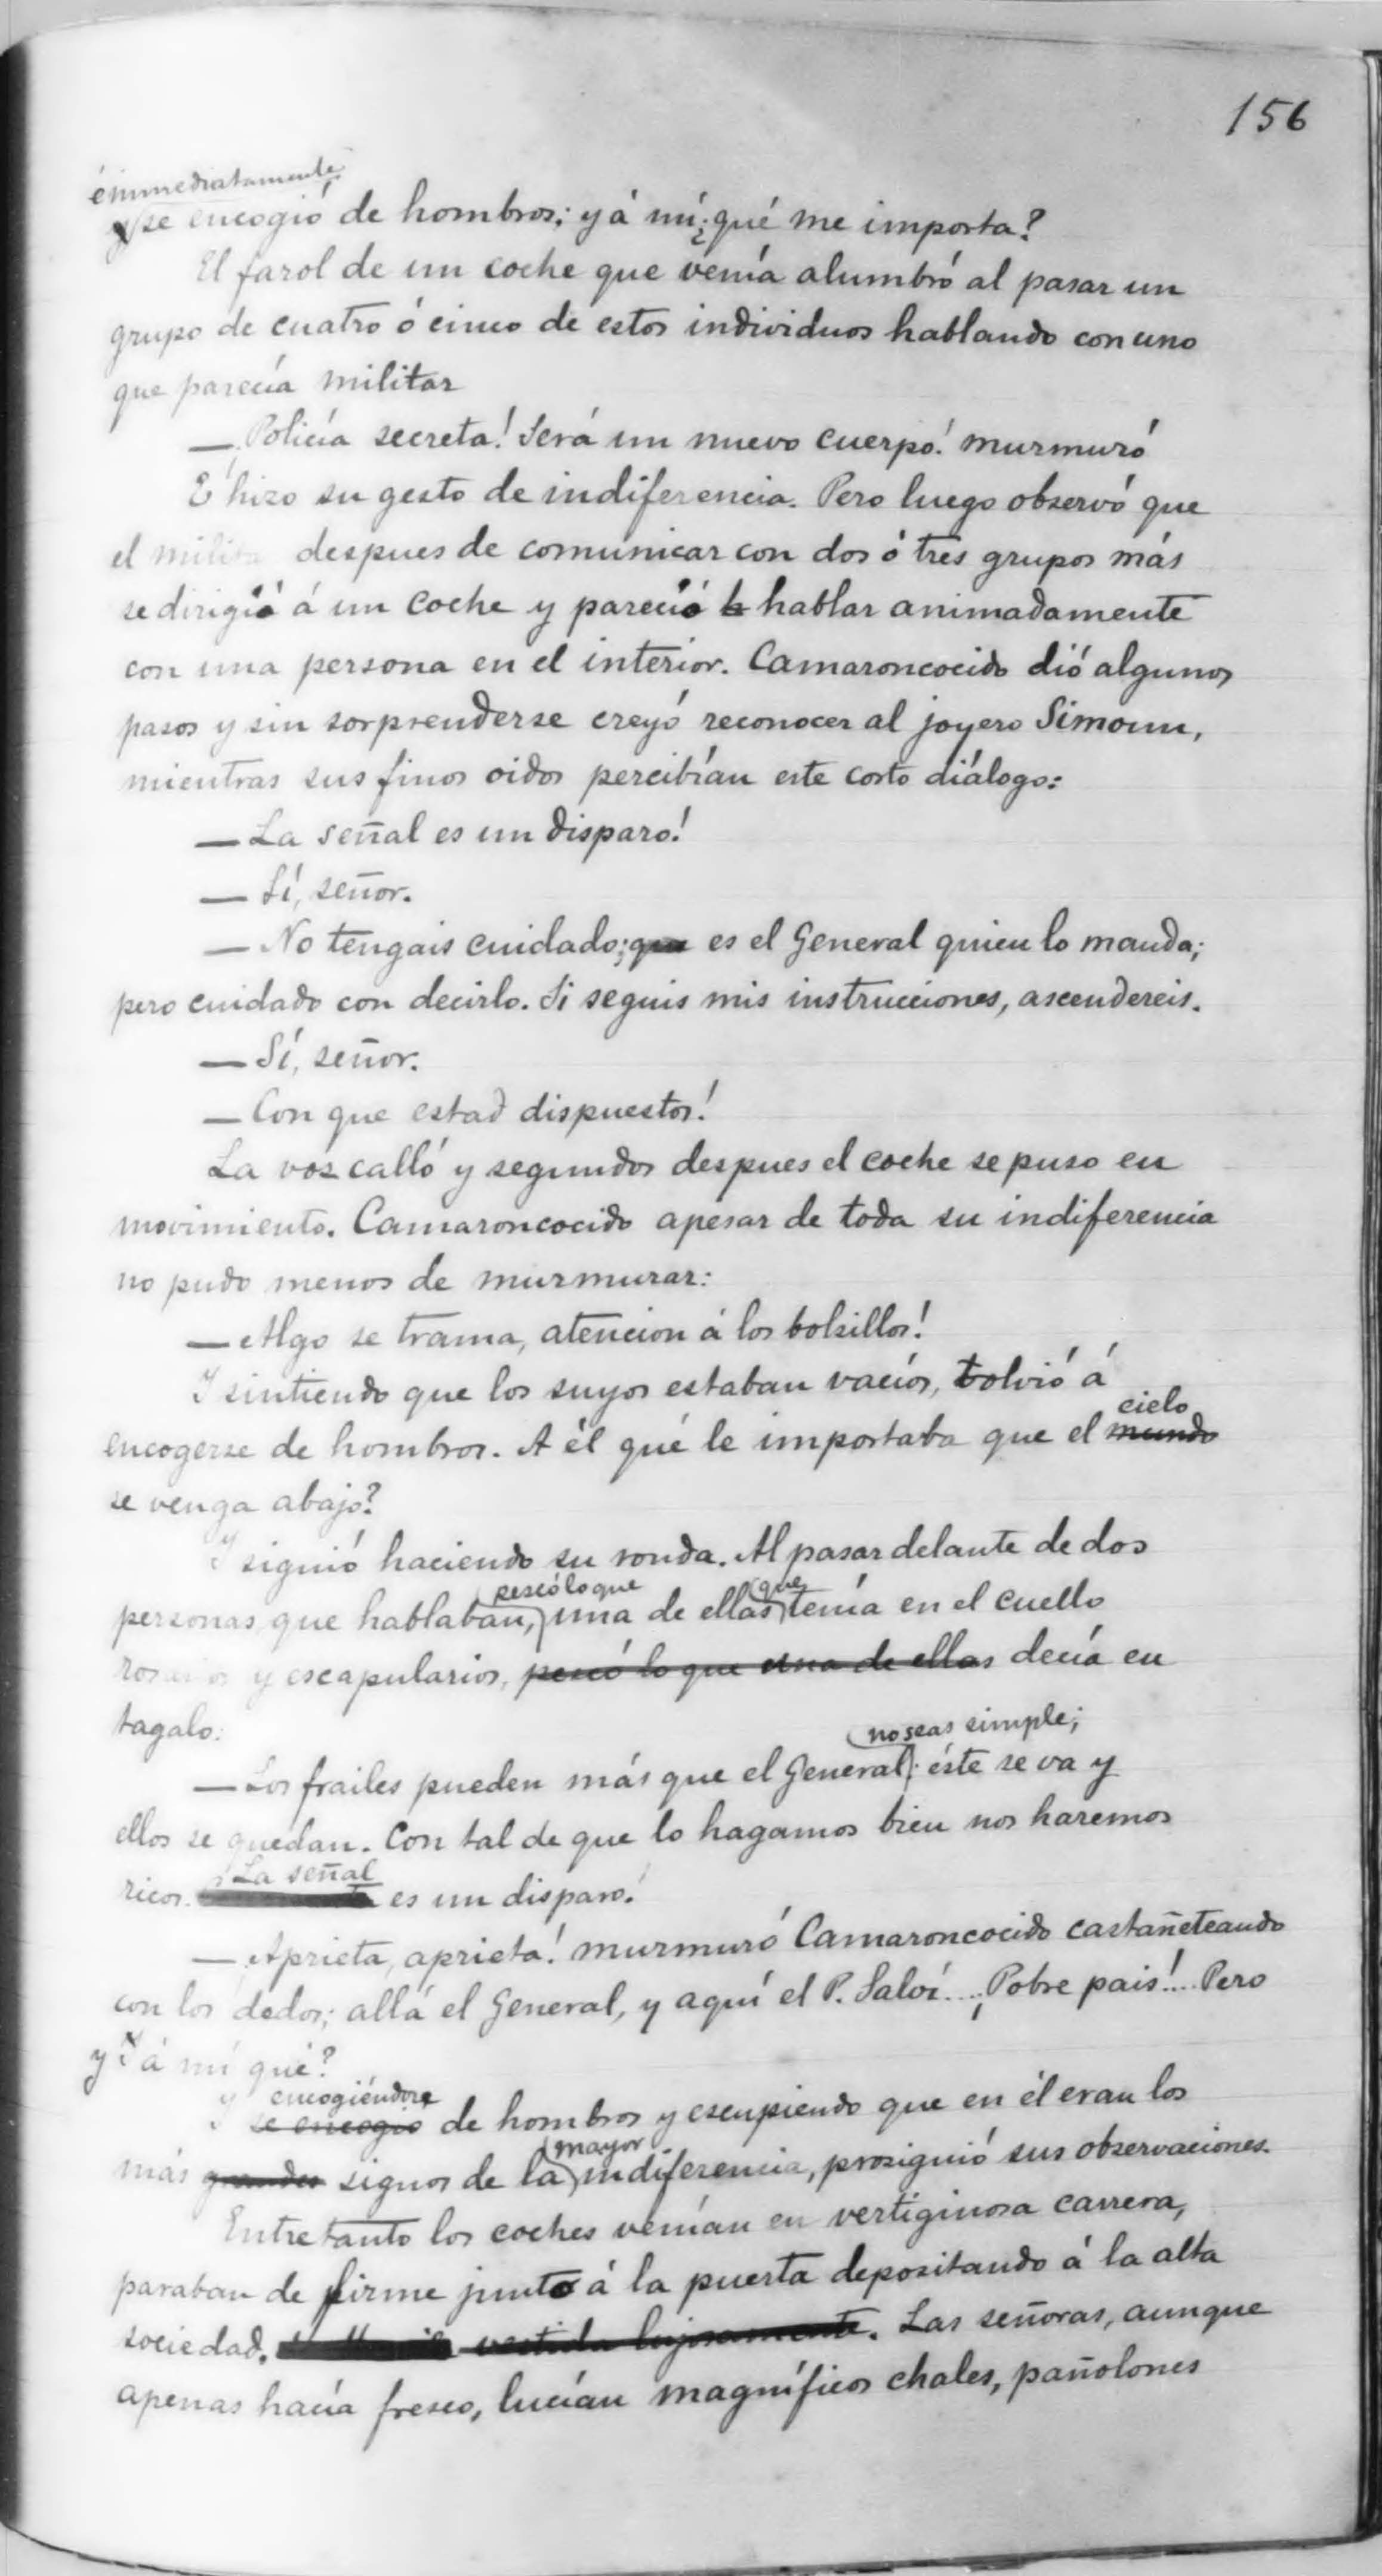 156
é immediatamente
y se encogió de hombros; y á mí ¿qué me importa?
El farol de un coche que venía alumbró al pasar un
grupo de cuatro ó cinco de estos individuos hablando con uno
que parecía militar
— ¡Policía secreta! Será un nuevo cuerpo! murmuró
E hizo su gesto de indiferencia. Pero luego observó que
el milita despues de comunicar con dos ó tres grupos más
se dirigió á un coche y pareció hablar animadamente
con una persona en el interior. Camaroncocido dió algunos
pasos y sin sorprenderse creyó reconocer al joyero Simoun,
mientras sus finos oidos percibían este corto diálogo:
— La señal es un disparo!
— Sí, señor.
— No tengais cuidado; que es el General quien lo manda;
pero cuidado con decirlo. Si seguis mis instrucciones, ascendereis.
— Sí, señor.
— Con que estad dispuestos!
La voz calló y segundos despues el coche se puso en
movimiento. Camaroncocido apesar de toda su indiferencia
no pudo menos de murmurar:
— Algo se trama, atencion á los bolsillos!
Y sintiendo que los suyos estaban vacíos, volvió á
cielo
encogerse de hombros. A él qué le importaba que el mundo
se venga abajo?
Y siguió haciendo su ronda. Al pasar delante de dos
pescó lo que que
personas que hablaban, una de ellas tenía en el cuello
rosarios y escapularios, pescó lo que una de ellas decía en
tagalo:
no seas simple;
— Los frailes pueden más que el General; éste se va y
ellos se quedan. Con tal de que lo hagamos bien nos haremos
La señal
ricos. es un disparo!
— ¡Aprieta, aprieta! murmuró Camaroncocido castañeteando
con los dedos; allá el General, y aquí el P. Salví.... ¡Pobre pais!.... Pero
y á mí qué?
encogiéndose
Y se encogió de hombros y escupiendo que en él eran los
mayor
más grandes signos de la indiferencia, prosiguió sus observaciones.
Entretanto los coches venían en vertiginosa carrera,
paraban de firme junto á la puerta depositando á la alta
sociedad. vestida lujosamente. Las señoras, aunque
apenas hacía fresco, lucían magníficos chales, pañolones